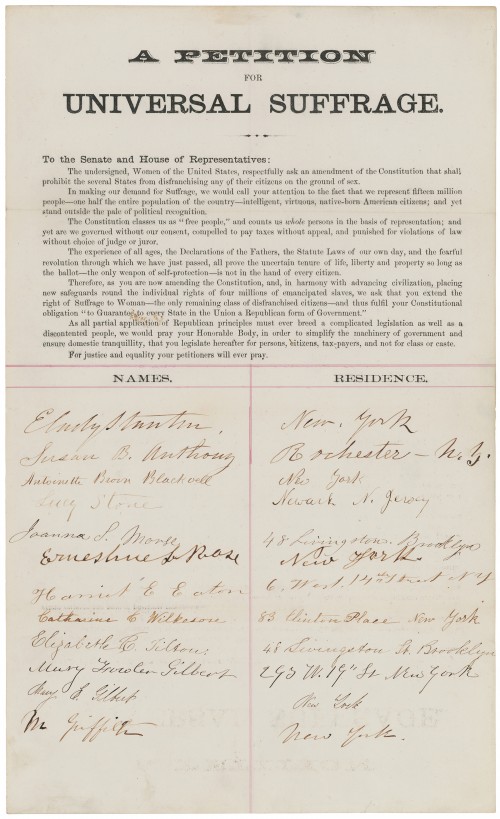 A PETITION
FOR
UNIVERSAL SUFFRAGE.
To the Senate and House of Representatives:
The undersigned, Women of the United States, respectfully ask an amendment of the Constitution that shall
prohibit the several States from disfranchising any of their citizens on the ground of sex.
In making our demand for Suffrage, we would call your attention to the fact that we represent fifteen million
people—one half the entire population of the country—intelligent, virtuous, native-born American citizens; and yet
stand outside the pale of political recognition.
The Constitution classes us as "free people," and counts us whole persons in the basis of representation; and
yet are we governed without our consent, compelled to pay taxes without appeal, and punished for violations of law
without choice of judge or juror.
The experience of all ages, the Declarations of the Fathers, the Statute Laws of our own day, and the fearful
revolution through which we have just passed, all prove the uncertain tenure of life, liberty and property so long as
the ballot—the only weapon of self-protection—is not in the hand of every citizen.
Therefore, as you are now amending the Constitution, and, in harmony with advancing civilization, placing
new safeguards round the individual rights of four millions of emancipated slaves, we ask that you extend the
right of Suffrage to Woman—the only remaining class of disfranchised citizens—and thus fulfil your Constitutional
obligation "to Guarantee to every State in the Union a Republican form of Government."
As all partial application of Republican principles must ever breed a complicated legislation as well as a
discontented people, we would pray your Honorable Body, in order to simplify the machinery of government and
ensure domestic tranquillity, that you legislate hereafter for persons, citizens, tax-payers, and not for class or caste.
For justice and equality your petitioners will ever pray.
NAMES. RESIDENCE.
E Cady Stanton, New. York
Susan B. Anthony Rochester - N.Y.
Antoinette Brown Blackwell New York
Lucy Stone Newark N. Jersey
Joanna S. Morse 48 Livingston. Brooklyn
Ernestine L Rose New York
Harriet E Eaton 6. West. 14th Street N.Y
Catharine C Wilkeson 83 Clinton Place New York
Elizabeth R. Tilton: 48 Livingston St. Brooklyn
Mary Fowler Gilbert 293 W. 19th St New York
Gilbert New York
M Griffith New York.